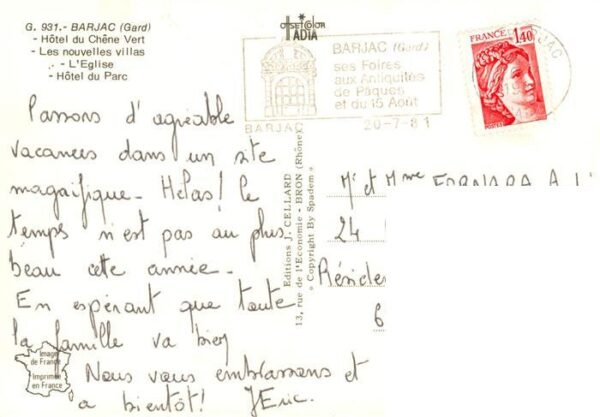 G. 931.- BARJAC (Gard)
- Hôtel du Chêne Vert
- Les nouvelles villas
- L'Eglise
- Hôtel du Parc
OFFSETCOLOR
ADIA
BARJAC (Gard)
ses Foires
aux Antiquités
de Pâques
et du 15 Août
BARJAC
20-7-81
FRANCE
1,40
POSTES
BARJAC
Passons d'agréable
vacances dans un site
magnifique. Hélas! le
temps n'est pas au plus
beau cette année.
En espérant que toute
la famille va bien
Nous vous embrassons et
a bientôt! Eric.
Editions J. CELLARD
13, rue de l'Economie - BRON (Rhône)
« Copyright By Spadem »
Mr et Mme
24
Réside
6
Image
de France
Imprimée
en France